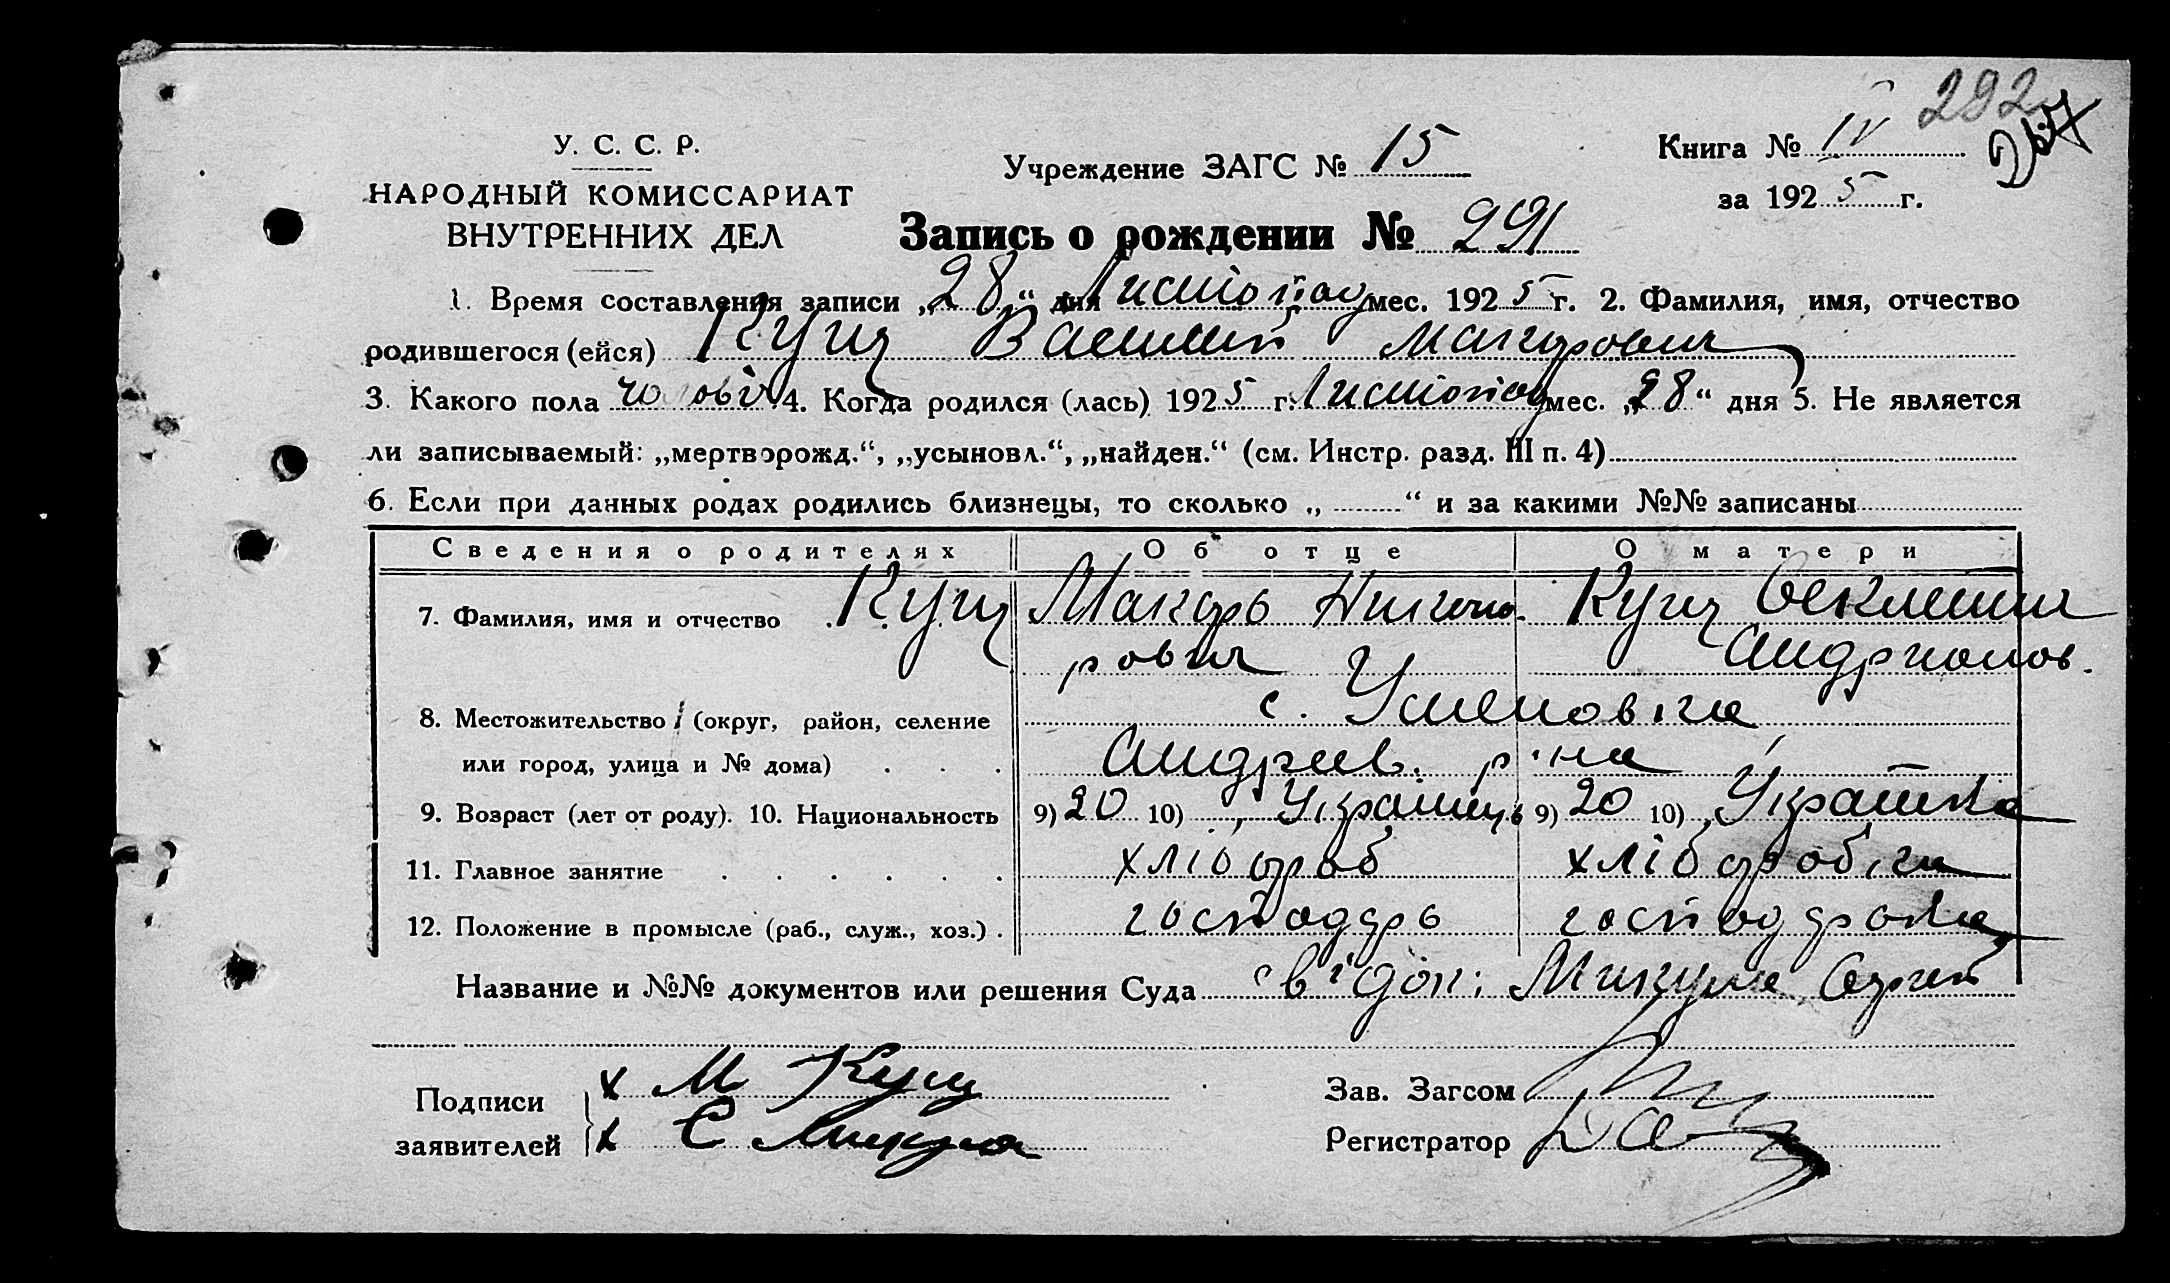 292
У. С. С. Р.
НАРОДНЫЙ КОМИССАРИАТ
ВНУТРЕННИХ ДЕЛ
Учреждение ЗАГС № 15
Книга № IV
за 1925 г.
Запись о рождении № 291
1. Время составления записи „28“ дня Листопад мес. 1925 г. 2. Фамилия, имя, отчество
родившегося (ейся) Кущ Василий Макарович
3. Какого пола чоловів 4. Когда родился (лась) 1925 г. Листопад мес. „28“ дня 5. Не является
ли записываемый: „мертворожд.“, „усыновл.“, „найден.“ (см. Инстр. разд. III п. 4)
6. Если при данных родах родились близнецы, то сколько „ “ и за какими №№ записаны
Сведения о родителях Об отце О матери
7. Фамилия, имя и отчество Кущ Макарь Никано- Кущ
рович Андрианов.
8. Местожительство (округ, район, селение с.
или город, улица и № дома) Андріев. р-на
9. Возраст (лет от роду). 10. Национальность 9) 20 10) Украинць 9) 20 10) Українка
11. Главное занятие хлібороб хліборобка
12. Положение в промысле (раб., служ., хоз.) господарь господарка
Название и №№ документов или решения Суда Микула Сергей
Подписи М Кущ
заявителей С Микула
Зав. Загсом
Регистратор